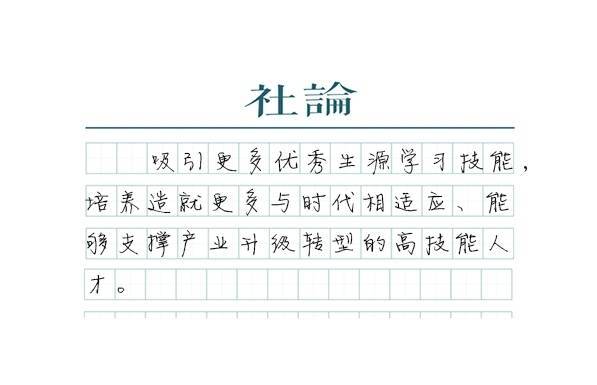 社論
吸引更多优秀生源学习技能，
培养造就更多与时代相适应、能
够支撑产业升级转型的高技能人
才。